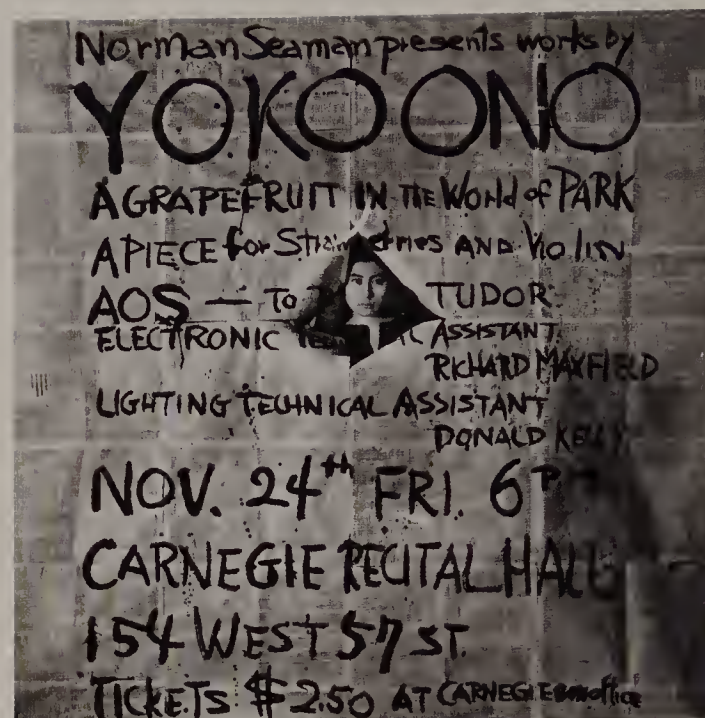 Norman Seaman presents works by
YOKO ONO
A GRAPEFRUIT IN THE WORLD of PARK
A PIECE for AND VIOLIN
AOS — To TUDOR
ELECTRONIC ASSISTANT
RICHARD MAXFIELD
LIGHTING TECHNICAL ASSISTANT
DONALD
NOV. 24th FRI. 6 P.M
CARNEGIE RECITAL HALL
154 WEST 57 ST.
TICKETS $2.50 AT CARNEGIE BOX office